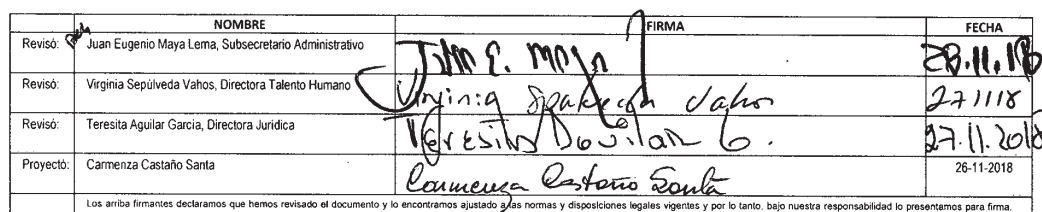 NOMBRE FIRMA FECHA
Revisó: Juan Eugenio Maya Lema, Subsecretario Administrativo Juan E. Maya 28.11.18
Revisó: Virginia Sepúlveda Vahos, Directora Talento Humano Virginia Sepulveda Vahos 271118
Revisó: Teresita Aguilar García, Directora Jurídica Teresita Aguilar G. 27.11.2018
Proyectó: Carmenza Castaño Santa Carmenza Castaño Santa 26-11-2018
Los arriba firmantes declaramos que hemos revisado el documento y lo encontramos ajustado a las normas y disposiciones legales vigentes y por lo tanto, bajo nuestra responsabilidad lo presentamos para firma.